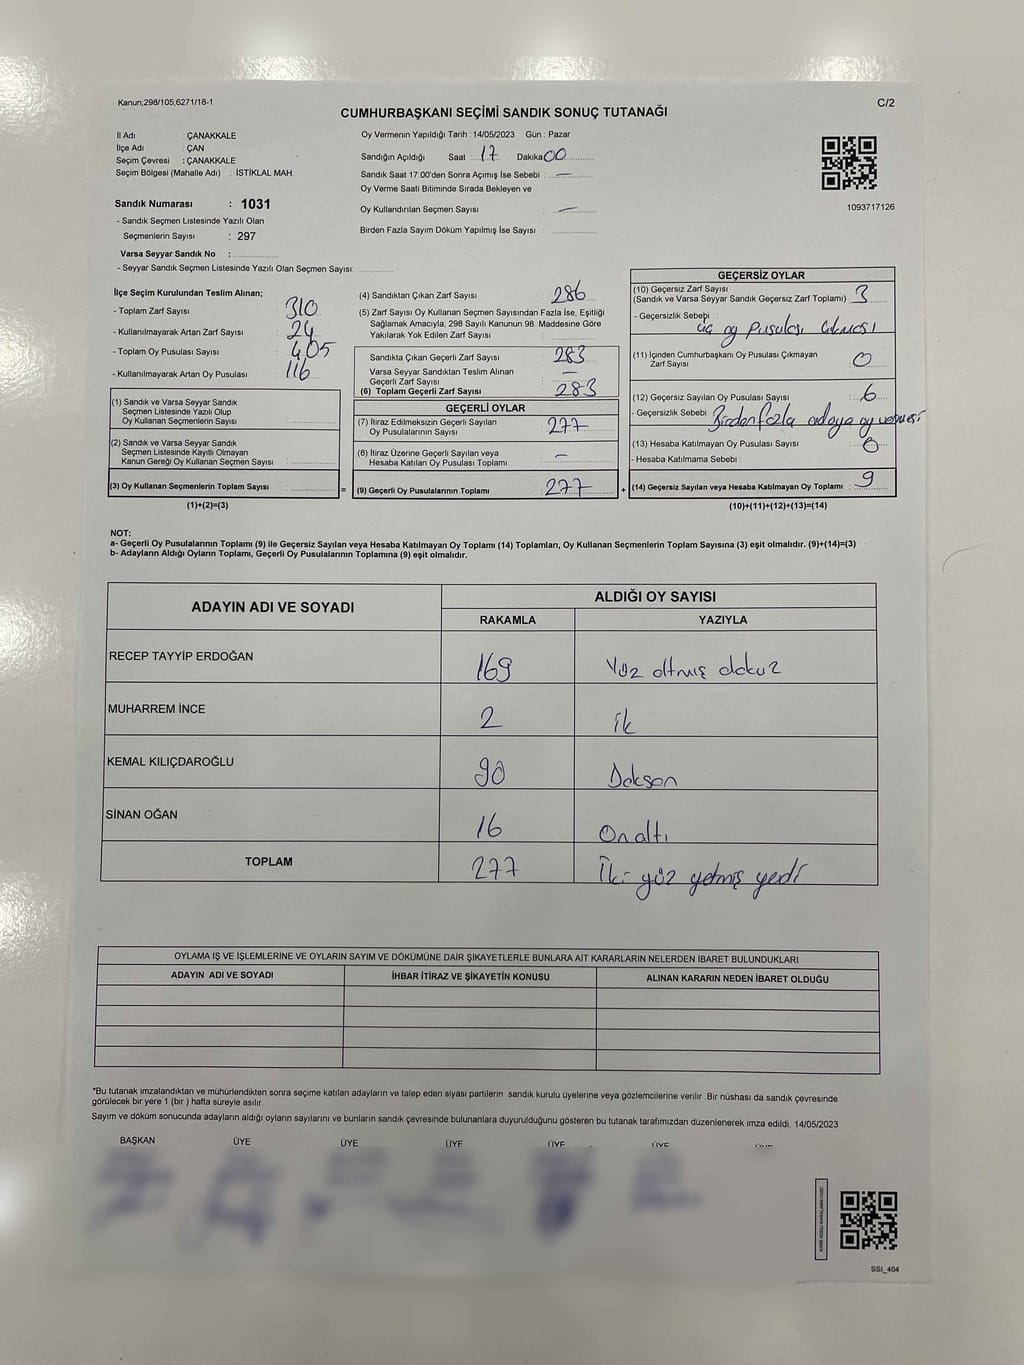 Kanun;298/105;6271/18-1
C/2
CUMHURBAŞKANI SEÇİMİ SANDIK SONUÇ TUTANAĞI
İl Adı : ÇANAKKALE
İlçe Adı : ÇAN
Seçim Çevresi : ÇANAKKALE
Seçim Bölgesi (Mahalle Adı) : İSTİKLAL MAH.
Sandık Numarası : 1031
- Sandık Seçmen Listesinde Yazılı Olan
Seçmenlerin Sayısı : 297
Varsa Seyyar Sandık No :
- Seyyar Sandık Seçmen Listesinde Yazılı Olan Seçmen Sayısı:
Oy Vermenin Yapıldığı Tarih : 14/05/2023 Gün : Pazar
Sandığın Açıldığı Saat : 17 Dakika 00
Sandık Saat 17.00'den Sonra Açımış İse Sebebi : —
Oy Verme Saati Bitiminde Sırada Bekleyen ve
Oy Kullandırılan Seçmen Sayısı : —
Birden Fazla Sayım Döküm Yapılmış İse Sayısı :
1093717126
İlçe Seçim Kurulundan Teslim Alınan;
- Toplam Zarf Sayısı : 310
- Kullanılmayarak Artan Zarf Sayısı : 24
- Toplam Oy Pusulası Sayısı : 405
- Kullanılmayarak Artan Oy Pusulası : 116
(1) Sandık ve Varsa Seyyar Sandık
Seçmen Listesinde Yazılı Olup
Oy Kullanan Seçmenlerin Sayısı :
(2) Sandık ve Varsa Seyyar Sandık
Seçmen Listesinde Kayıtlı Olmayan
Kanun Gereği Oy Kullanan Seçmen Sayısı :
(3) Oy Kullanan Seçmenlerin Toplam Sayısı :
(1)+(2)=(3)
(4) Sandıktan Çıkan Zarf Sayısı : 286
(5) Zarf Sayısı Oy Kullanan Seçmen Sayısından Fazla İse, Eşitliği
Sağlamak Amacıyla; 298 Sayılı Kanunun 98. Maddesine Göre
Yakılarak Yok Edilen Zarf Sayısı :
Sandıkta Çıkan Geçerli Zarf Sayısı : 283
Varsa Seyyar Sandıktan Teslim Alınan
Geçerli Zarf Sayısı : —
(6) Toplam Geçerli Zarf Sayısı : 283
GEÇERLİ OYLAR
(7) İtiraz Edilmeksizin Geçerli Sayılan
Oy Pusulalarının Sayısı : 277
(8) İtiraz Üzerine Geçerli Sayılan veya
Hesaba Katılan Oy Pusulası Toplamı : —
= (9) Geçerli Oy Pusulalarının Toplamı : 277 +
GEÇERSİZ OYLAR
(10) Geçersiz Zarf Sayısı
(Sandık ve Varsa Seyyar Sandık Geçersiz Zarf Toplamı) : 3
- Geçersizlik Sebebi :
üç oy Pusulası
(11) İçinden Cumhurbaşkanı Oy Pusulası Çıkmayan
Zarf Sayısı : 0
(12) Geçersiz Sayılan Oy Pusulası Sayısı : 6
- Geçersizlik Sebebi : Birden fazla adaya oy vermesi
(13) Hesaba Katılmayan Oy Pusulası Sayısı : 0
- Hesaba Katılmama Sebebi :
(14) Geçersiz Sayılan veya Hesaba Katılmayan Oy Toplamı : 9
(10)+(11)+(12)+(13)=(14)
NOT:
a- Geçerli Oy Pusulasının Toplamı (9) ile Geçersiz Sayılan veya Hesaba Katılmayan Oy Toplamı (14) Toplamları, Oy Kullanan Seçmenlerin Toplam Sayısına (3) eşit olmalıdır. (9)+(14)=(3)
b- Adayların Aldığı Oyların Toplamı, Geçerli Oy Pusulalarının Toplamına (9) eşit olmalıdır.
ADAYIN ADI VE SOYADI ALDIĞI OY SAYISI
RAKAMLA YAZIYLA
RECEP TAYYİP ERDOĞAN 169 Yüz altmış dokuz
MUHARREM İNCE 2 ik
KEMAL KILIÇDAROĞLU 90 Doksan
SİNAN OĞAN 16 On altı
TOPLAM 277 İki yüz yetmiş yedi
OYLAMA İŞ VE İŞLEMLERİNE VE OYLARIN SAYIM VE DÖKÜMÜNE DAİR ŞİKAYETLERLE BUNLARA AİT KARARLARIN NELERDEN İBARET BULUNDUKLARI
ADAYIN ADI VE SOYADI İHBAR İTİRAZ VE ŞİKAYETİN KONUSU ALINAN KARARIN NEDEN İBARET OLDUĞU
*Bu tutanak imzalandıktan ve mühürlendikten sonra seçime katılan adayların ve talep eden siyasi partilerin sandık kurulu üyelerine veya gözlemcilerine verilir .Bir nüshası da sandık çevresinde
görülecek bir yere 1 (bir ) hafta süreyle asılır.
Sayım ve döküm sonucunda adayların aldığı oyların sayılarını ve bunların sandık çevresinde bulunanlara duyurulduğunu gösteren bu tutanak tarafımızdan düzenlenerek imza edildi. 14/05/2023
BAŞKAN ÜYE ÜYE ÜYE ÜYE ÜYE
SSI_404